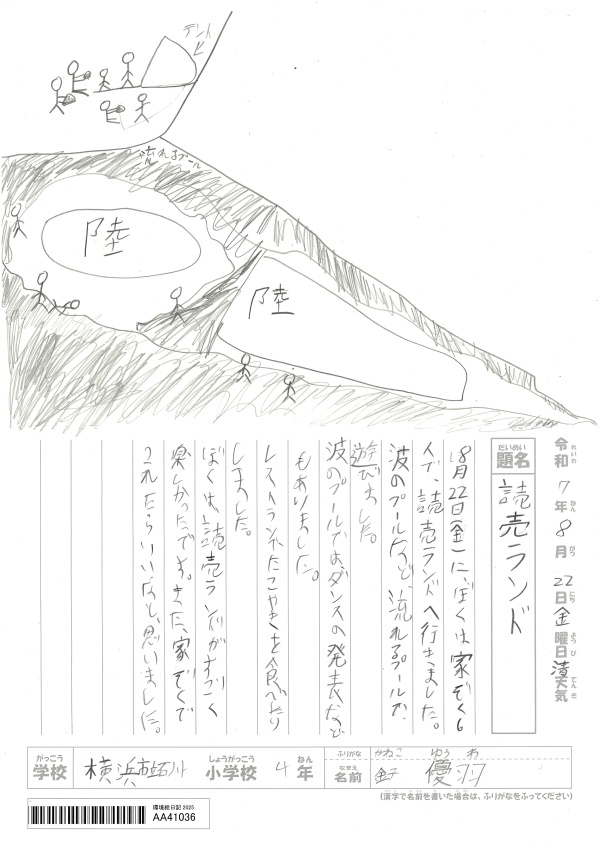 テント
流れるプール
陸
陸
令和7年8月22日金曜日天気
れいわ ねん がつ にち ようび てんき
だいめい
題名
読売ランド
8月22日(金)に、ぼくは家ぞく6
人で、読売ランドへ行きました。
波のプールなどや、流れるプールで
遊びました。
波のプールでは、ダンスの発表など
もありました。
レストランでたこやきを食べたり
しました。
ぼくは、読売ランドがすごく
楽しかったです。また、家ぞくで
これたらいいなと、思いました。
がっこう
学校
横浜市立石川
しょうがっこう
小学校
4
ねん
年
ふりがな
なまえ
名前
かねこ ゆう わ
金子 優羽
(漢字で名前を書いた場合は、ふりがなをふってください)
環境絵日記 2025
AA41036